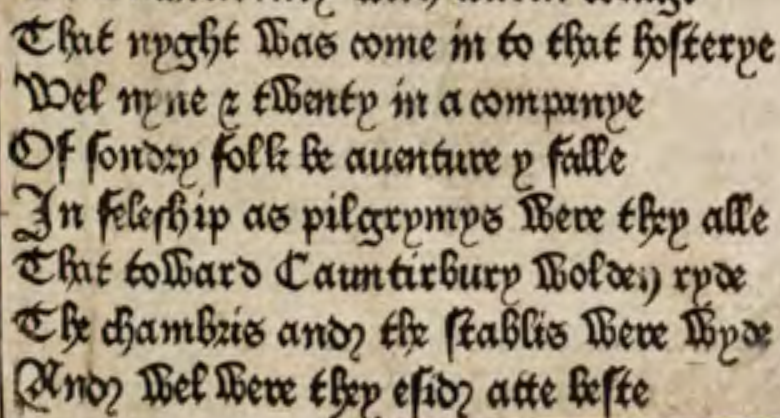 That nyght was come in to that hosterye
Wel nyne & twenty in a companye
Of sondry folk be auenture y falle
In feleship as pilgrymys were they alle
That toward Cauntirbury wolden ryde
The chambris and the stablis were wyde
And wel were they esid atte beste